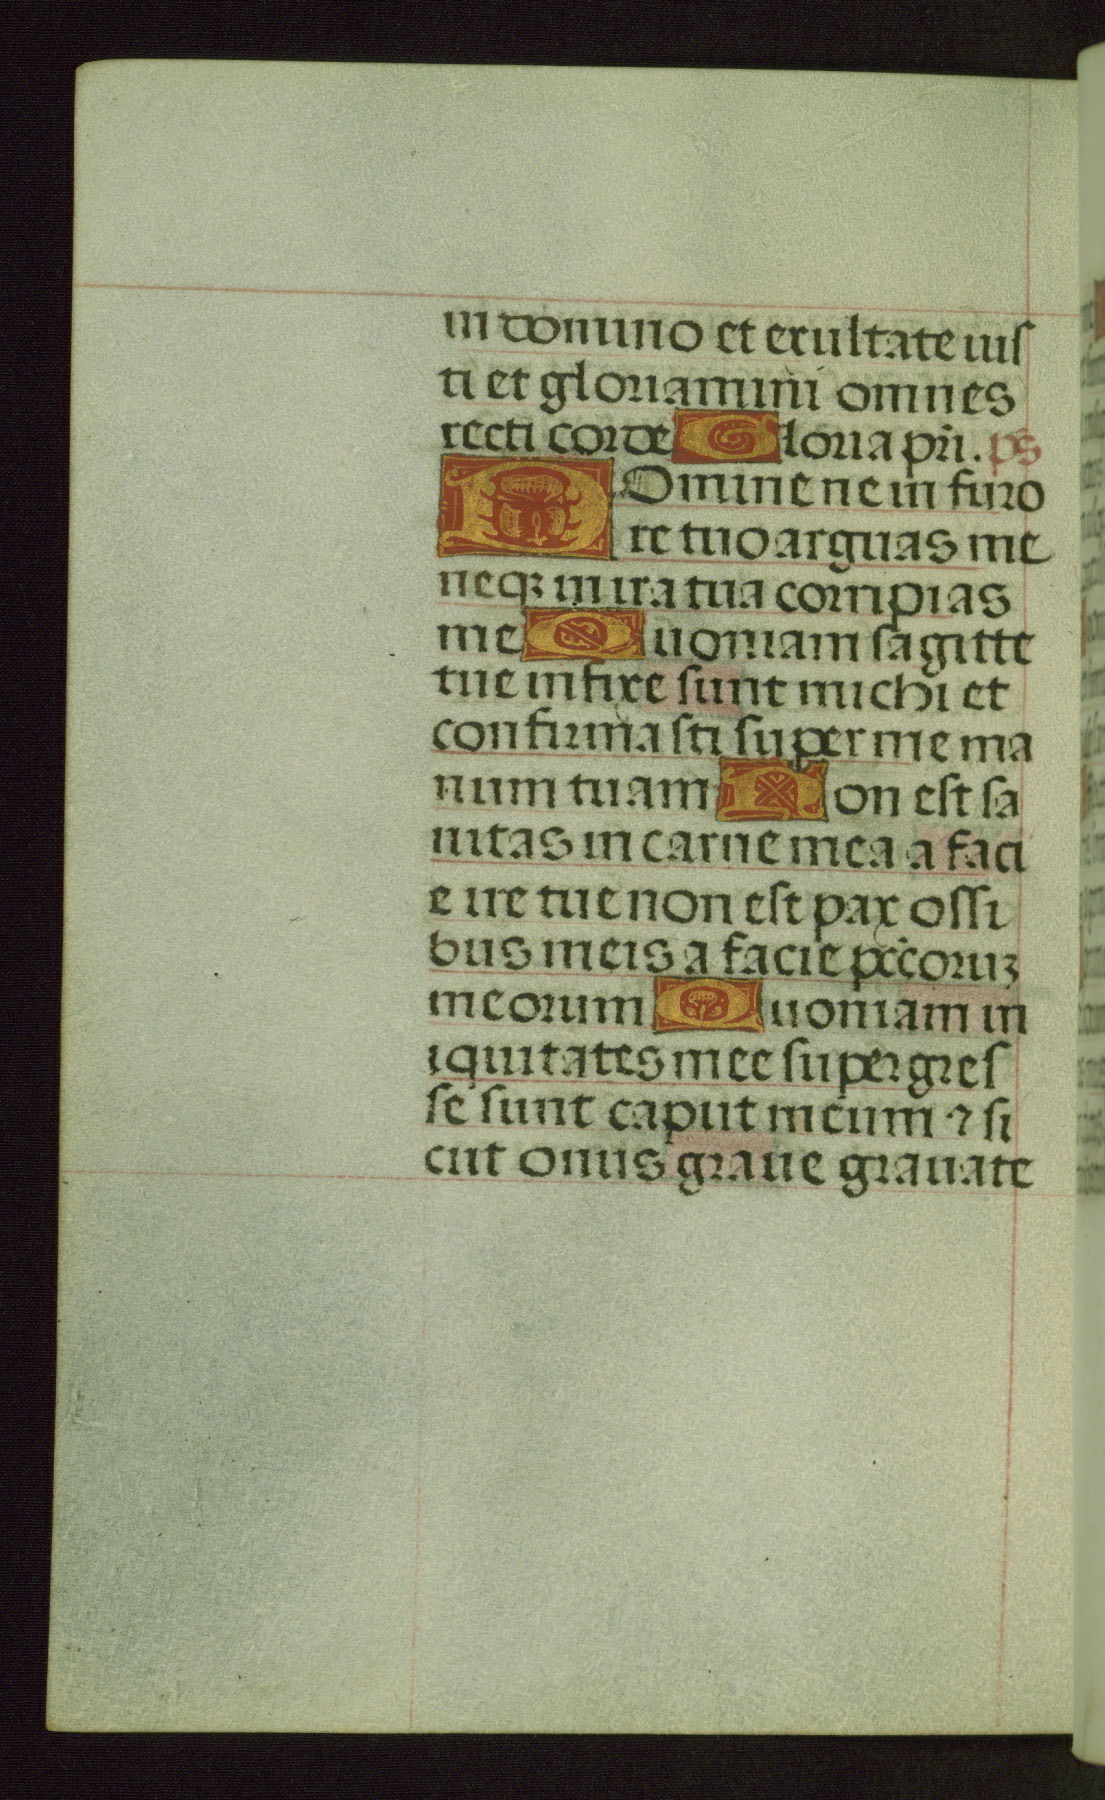 in domino et exultate iuſ
ti et gloriamini omnes
recti corde Gloria pr̄i. ps
DOmine ne in furo
re tuo arguas me
neqꝫ in ira tua corripias
me Quoniam sagitte
tue infixe sunt michi et
confirmasti super me ma
num tuam Non est sa
nitas in carne mea a faci
e ire tue non est pax ossi
bus meis a facie pccoruꝫ
meorum Quoniam in
iquitates mee supergres
se sunt caput meum ⁊ si
cut onus graue grauate